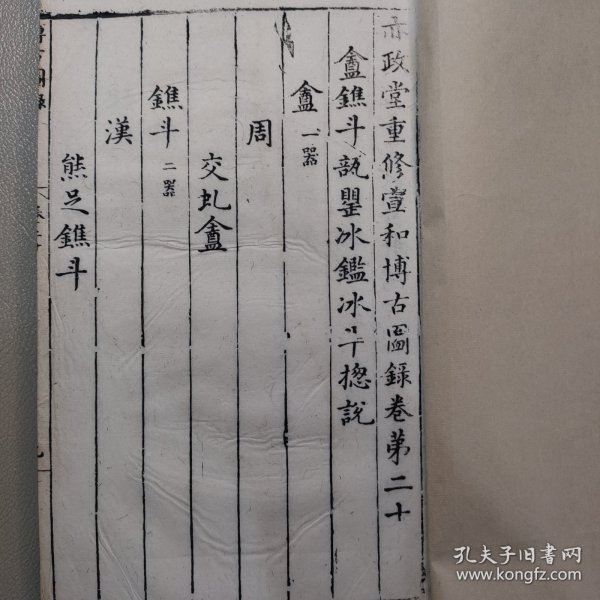 亦政堂重修宣和博古圖錄卷第二十
盦鐎斗瓿罌冰鑑冰斗摠說
盦一器
周
交虬盦
鐎斗二器
漢
熊足鐎斗
孔夫子旧書网
www.kongfz.com